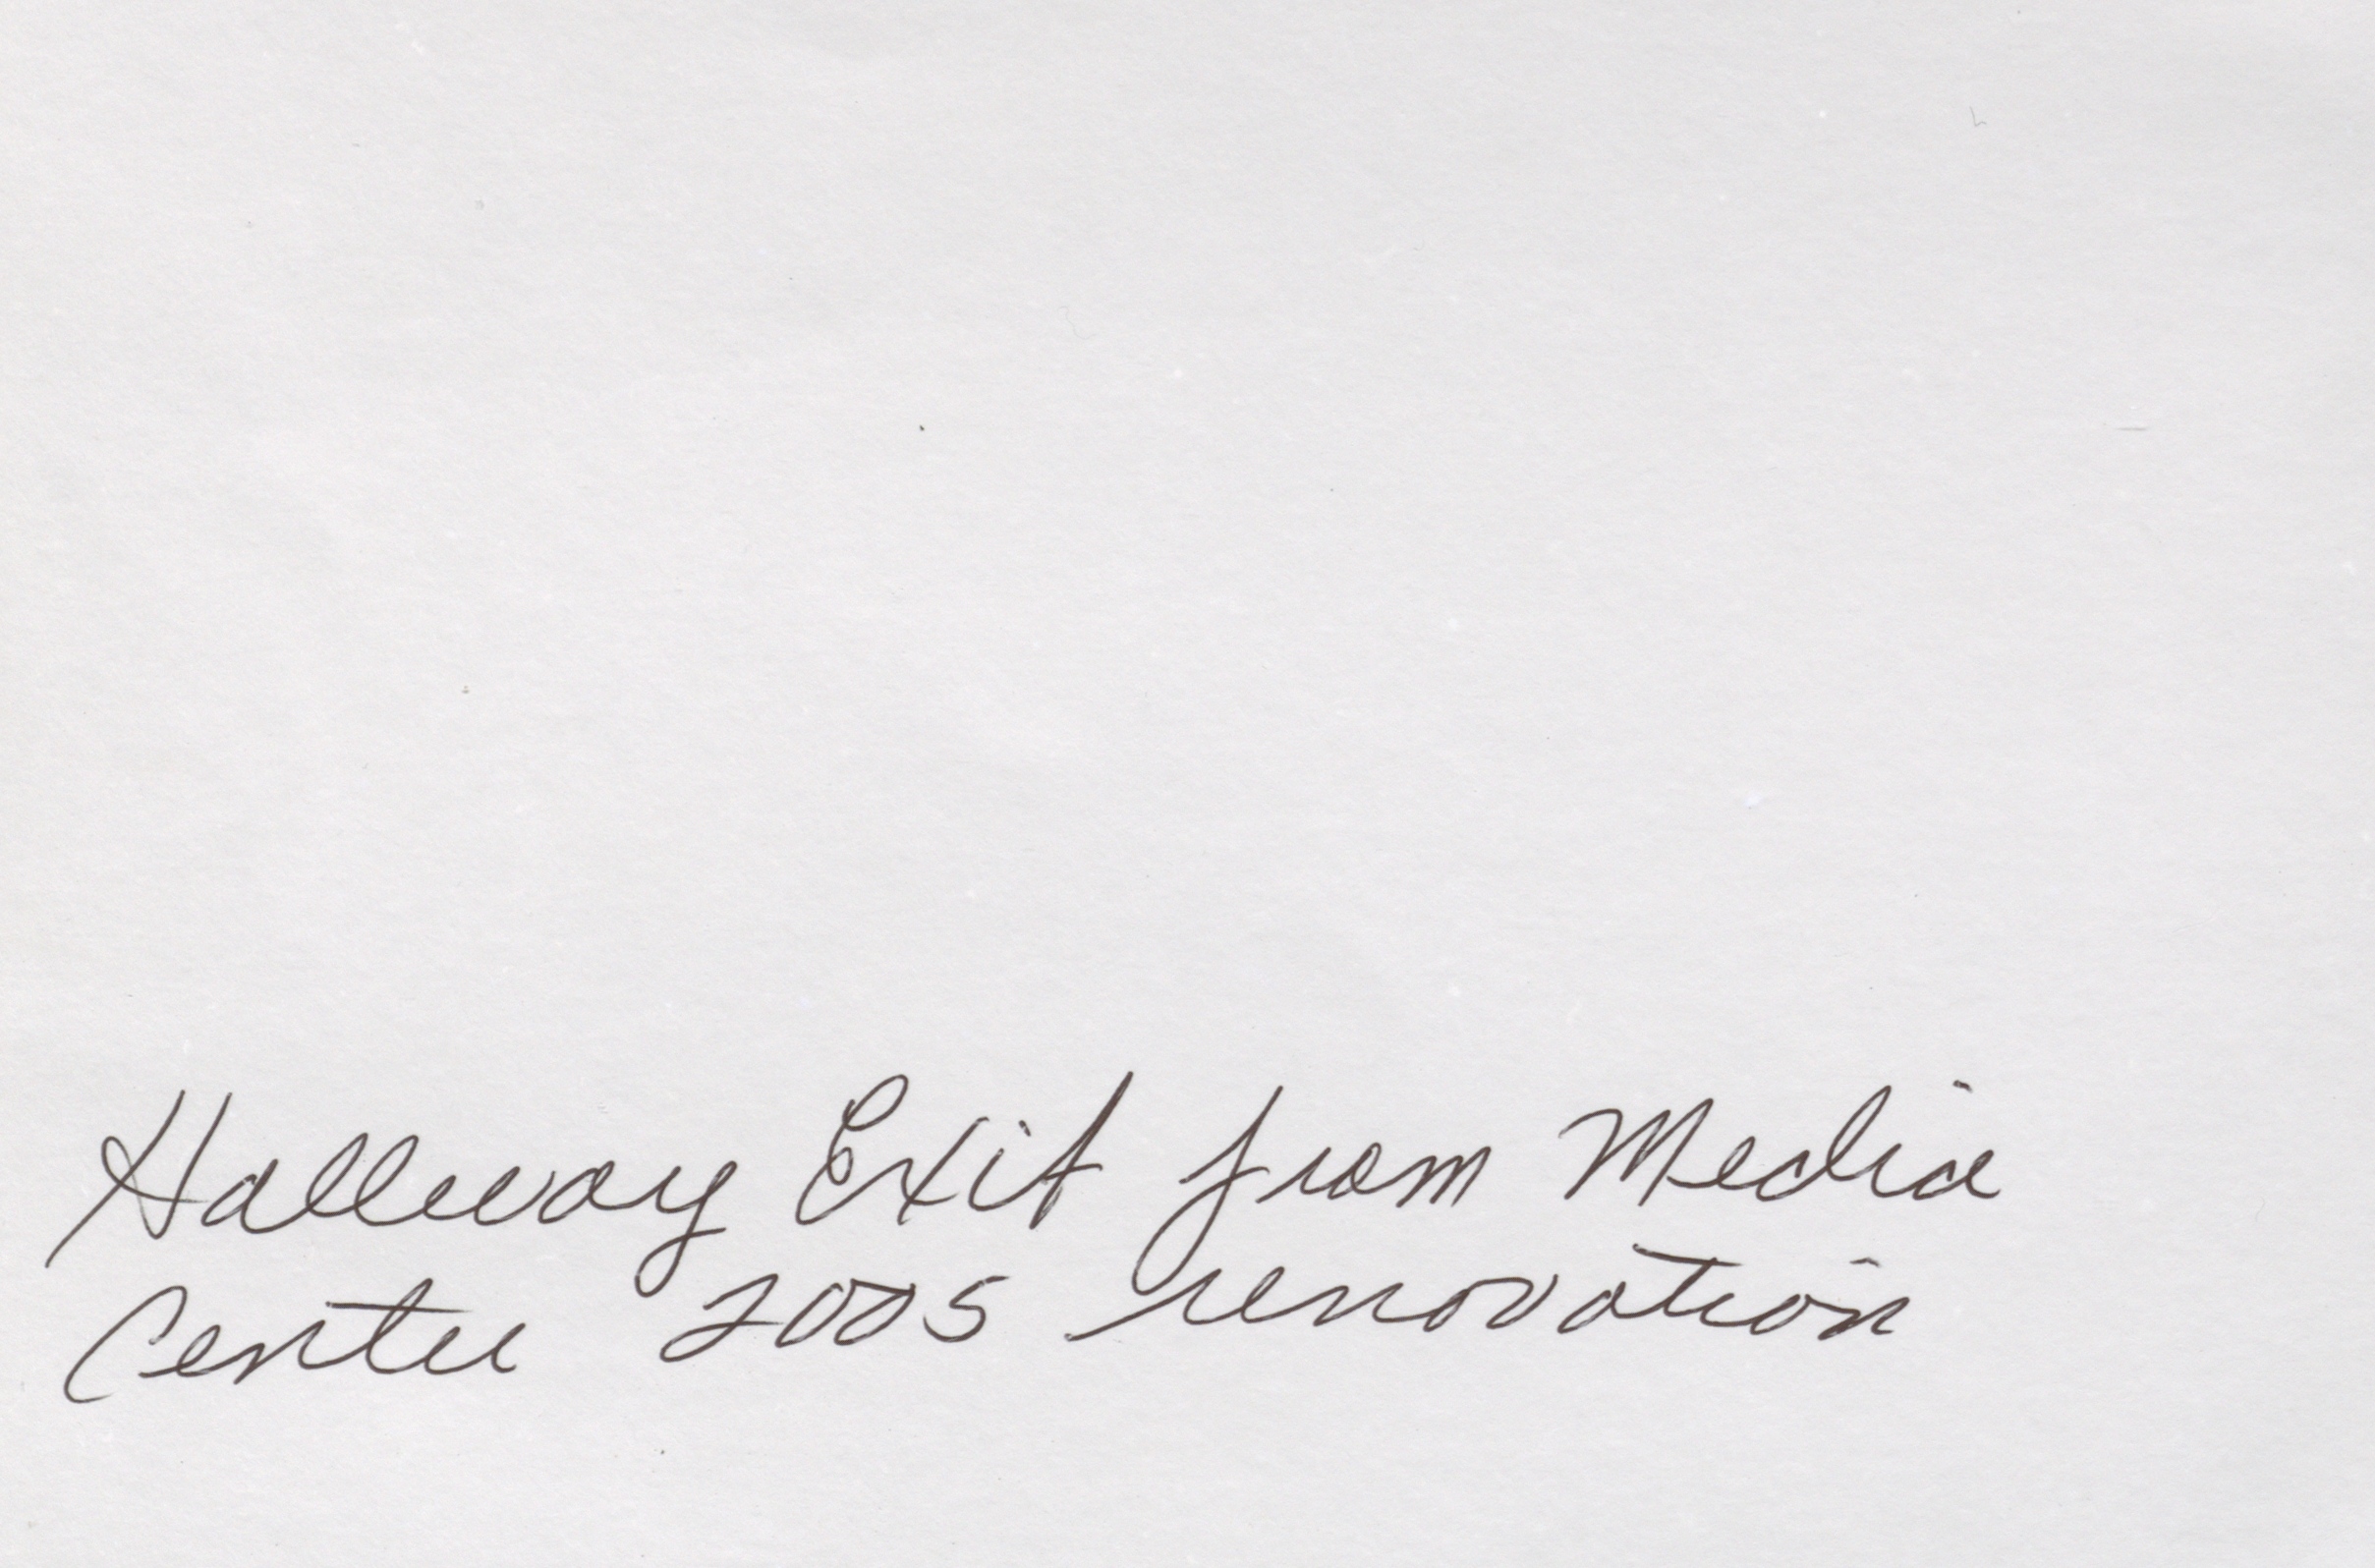 Hallway Exit from Media
Center 2005 renovation